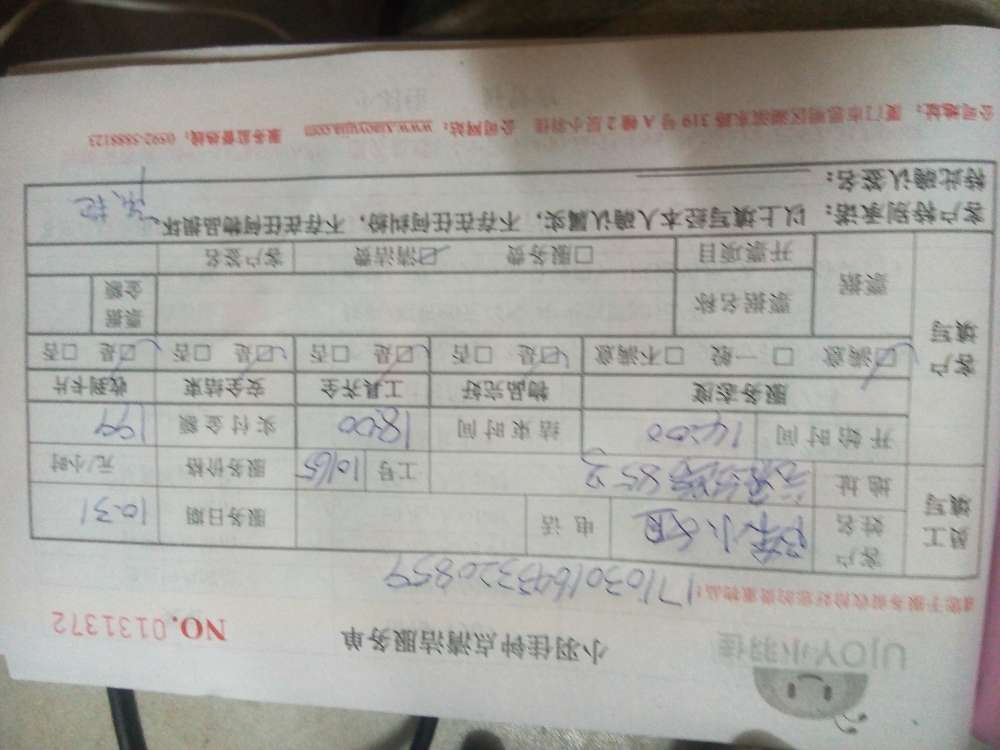 UJOY小羽佳
小羽佳钟点清洁服务单 NO.0131372
请您于服务前收拾好您的贵重物品：1716301693320859
员工填写 客户姓名 陈小姐 电话 服务日期 10.31
地址 工号 10165 服务价格 元/小时
开始时间 14:00 结束时间 18:00 实付金额 199
客户填写 服务态度 物品完好 工具齐全 安全结束 收到卡片
☑满意 □一般 □不满意 ☑是 □否 ☑是 □否 ☑是 □否 ☑是 □否
票据 票据名称 票据金额
开票项目 □服务费 ☑清洁费 客户签名
客户特别承诺：以上填写经本人确认属实，不存在任何纠纷，不存在任何物品损坏。
特此确认签名：
公司地址：厦门市思明区湖滨东路319号A幢2层小羽佳 公司网站：www.xiaoyujia.com 服务监督热线：0592-5888123